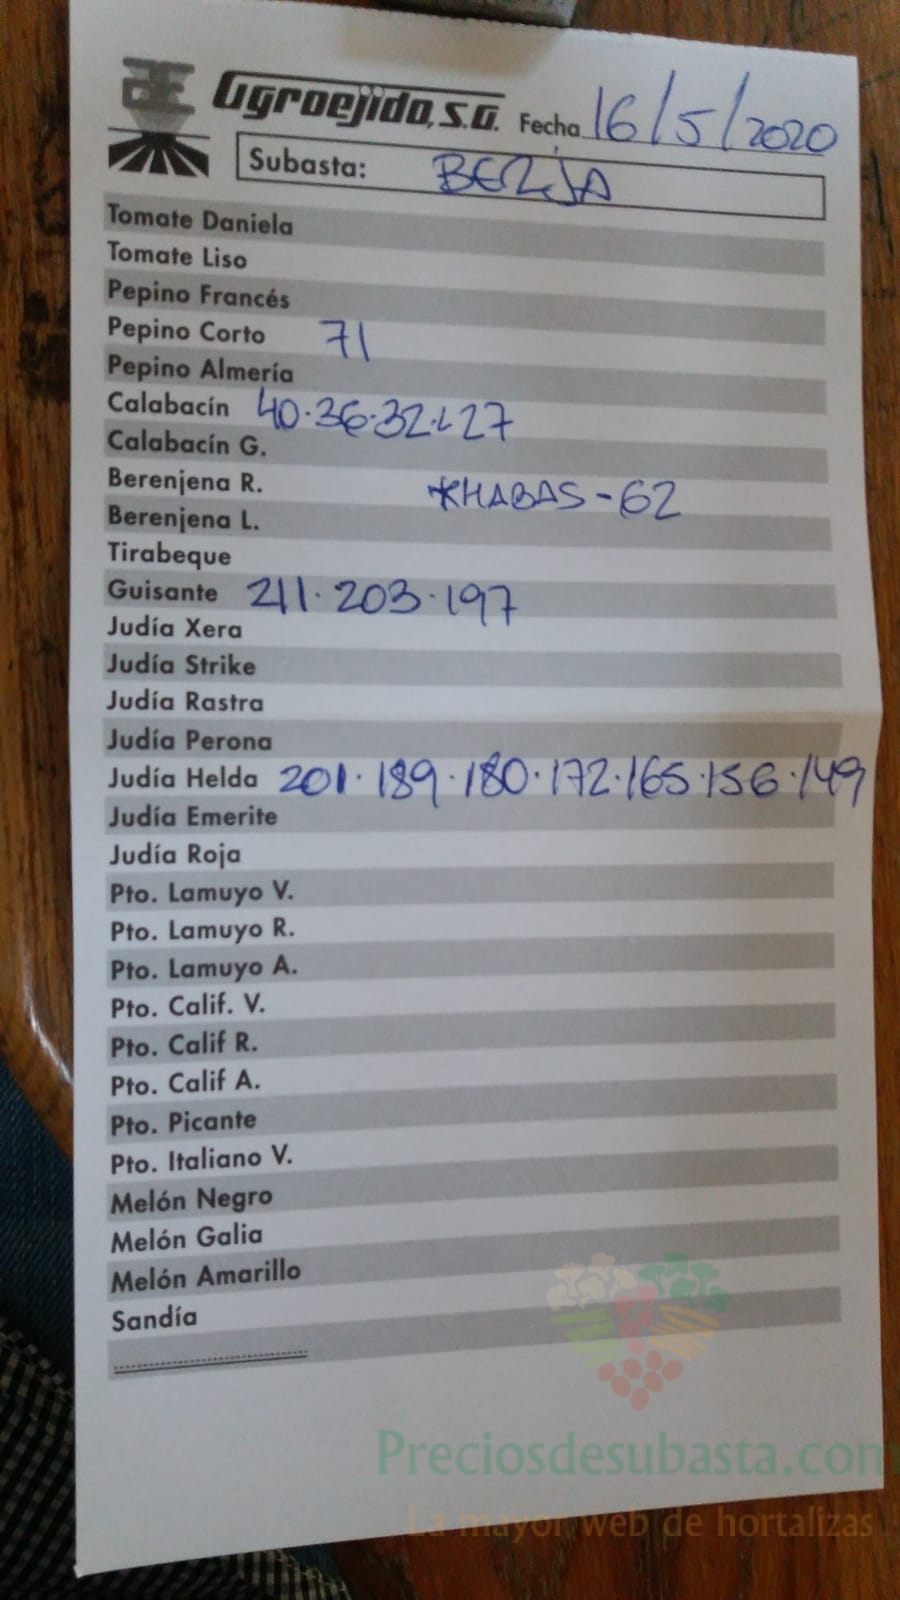 Agroejido, S.A. Fecha 16/5/2020
Subasta: BERJA
Tomate Daniela
Tomate Liso
Pepino Francés
Pepino Corto 71
Pepino Almería
Calabacín 40.36.32.27
Calabacín G.
Berenjena R. *HABAS-62
Berenjena L.
Tirabeque
Guisante 211.203.197
Judía Xera
Judía Strike
Judía Rastra
Judía Perona
Judía Helda 201.189.180.172.165.156.149
Judía Emerite
Judía Roja
Pto. Lamuyo V.
Pto. Lamuyo R.
Pto. Lamuyo A.
Pto. Calif. V.
Pto. Calif R.
Pto. Calif A.
Pto. Picante
Pto. Italiano V.
Melón Negro
Melón Galia
Melón Amarillo
Sandía
Preciosdesubasta.com
La mayor web de hortalizas